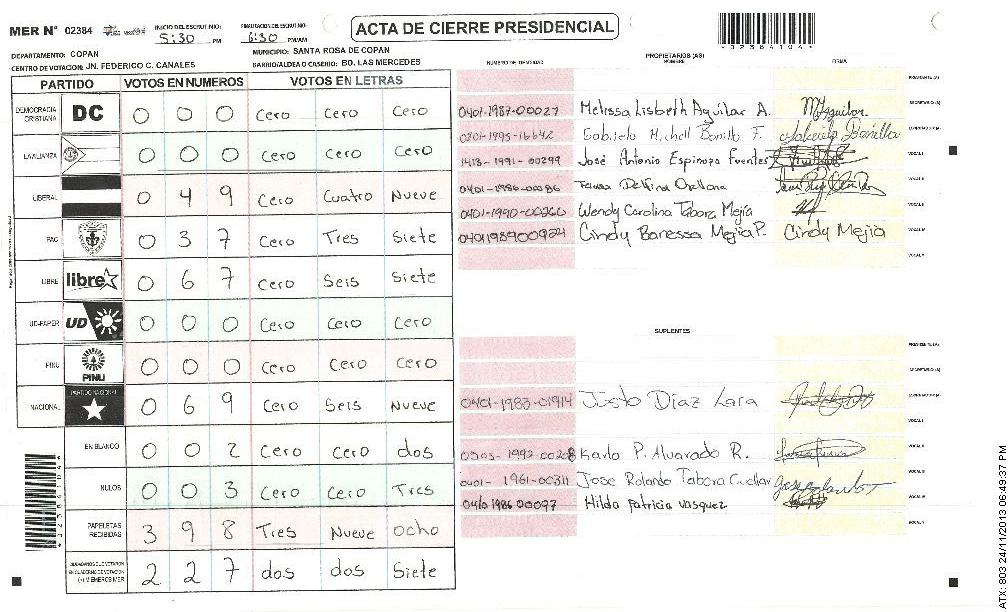 MER N° 02384 INICIO DEL ESCRUTINIO: 5:30 PM FINALIZACION DEL ESCRUTINIO: 6:30 PM/AM
ACTA DE CIERRE PRESIDENCIAL
DEPARTAMENTO: COPAN MUNICIPIO: SANTA ROSA DE COPAN
CENTRO DE VOTACION: JN. FEDERICO C. CANALES BARRIO/ALDEA O CASERIO: BO. LAS MERCEDES
PARTIDO VOTOS EN NUMEROS VOTOS EN LETRAS
DEMOCRACIA CRISTIANA DC 0 0 0 Cero Cero Cero
LA ALIANZA 0 0 0 Cero Cero Cero
LIBERAL 0 4 9 Cero Cuatro Nueve
PAC 0 3 7 Cero Tres Siete
LIBRE libre 0 6 7 Cero Seis Siete
UD-FAPER UD 0 0 0 Cero Cero Cero
PINU PINU 0 0 0 Cero Cero Cero
NACIONAL PARTIDO NACIONAL 0 6 9 Cero Seis Nueve
EN BLANCO 0 0 2 Cero Cero dos
NULOS 0 0 3 Cero Cero Tres
PAPELETAS RECIBIDAS 3 9 8 Tres Nueve ocho
(+) MIEMBROS MER 2 2 7 dos dos Siete
PROPIETARIOS (AS)
NUMERO DE IDENTIDAD NOMBRE FIRMA
PRESIDENTE (A)
0401-1987-00027 Melissa Lisbeth Aguilar A. M Aguilar SECRETARIO (A)
Gabriela Michell Bonilla F. Gabriela Bonilla ESCRUTADOR (A)
1413-1991-00299 José Antonio Espinoza Fuentes VOCAL I
0401-1986-00086 Orellana VOCAL II
0401-1990-00260 Wendy Carolina Tabora Mejía VOCAL III
0401198900924 Cindy Banessa Mejia P. Cindy Mejia VOCAL IV
VOCAL V
SUPLENTES
PRESIDENTE (A)
SECRETARIO (A)
0401-1983-01914 Justo Diaz Lara ESCRUTADOR (A)
VOCAL I
Karla P. Alvarado R. VOCAL II
0401-1961-00311 Jose Rolando Tabora Cuellar VOCAL III
0410 1986 00097 Hilda Patricia Vasquez VOCAL IV
VOCAL V
02384104
ATX: 803 24/11/2013 06:49:37 PM